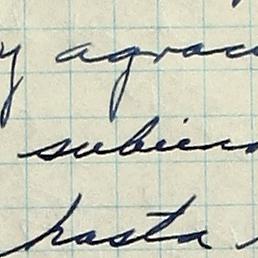 y agrac
subier
hasta